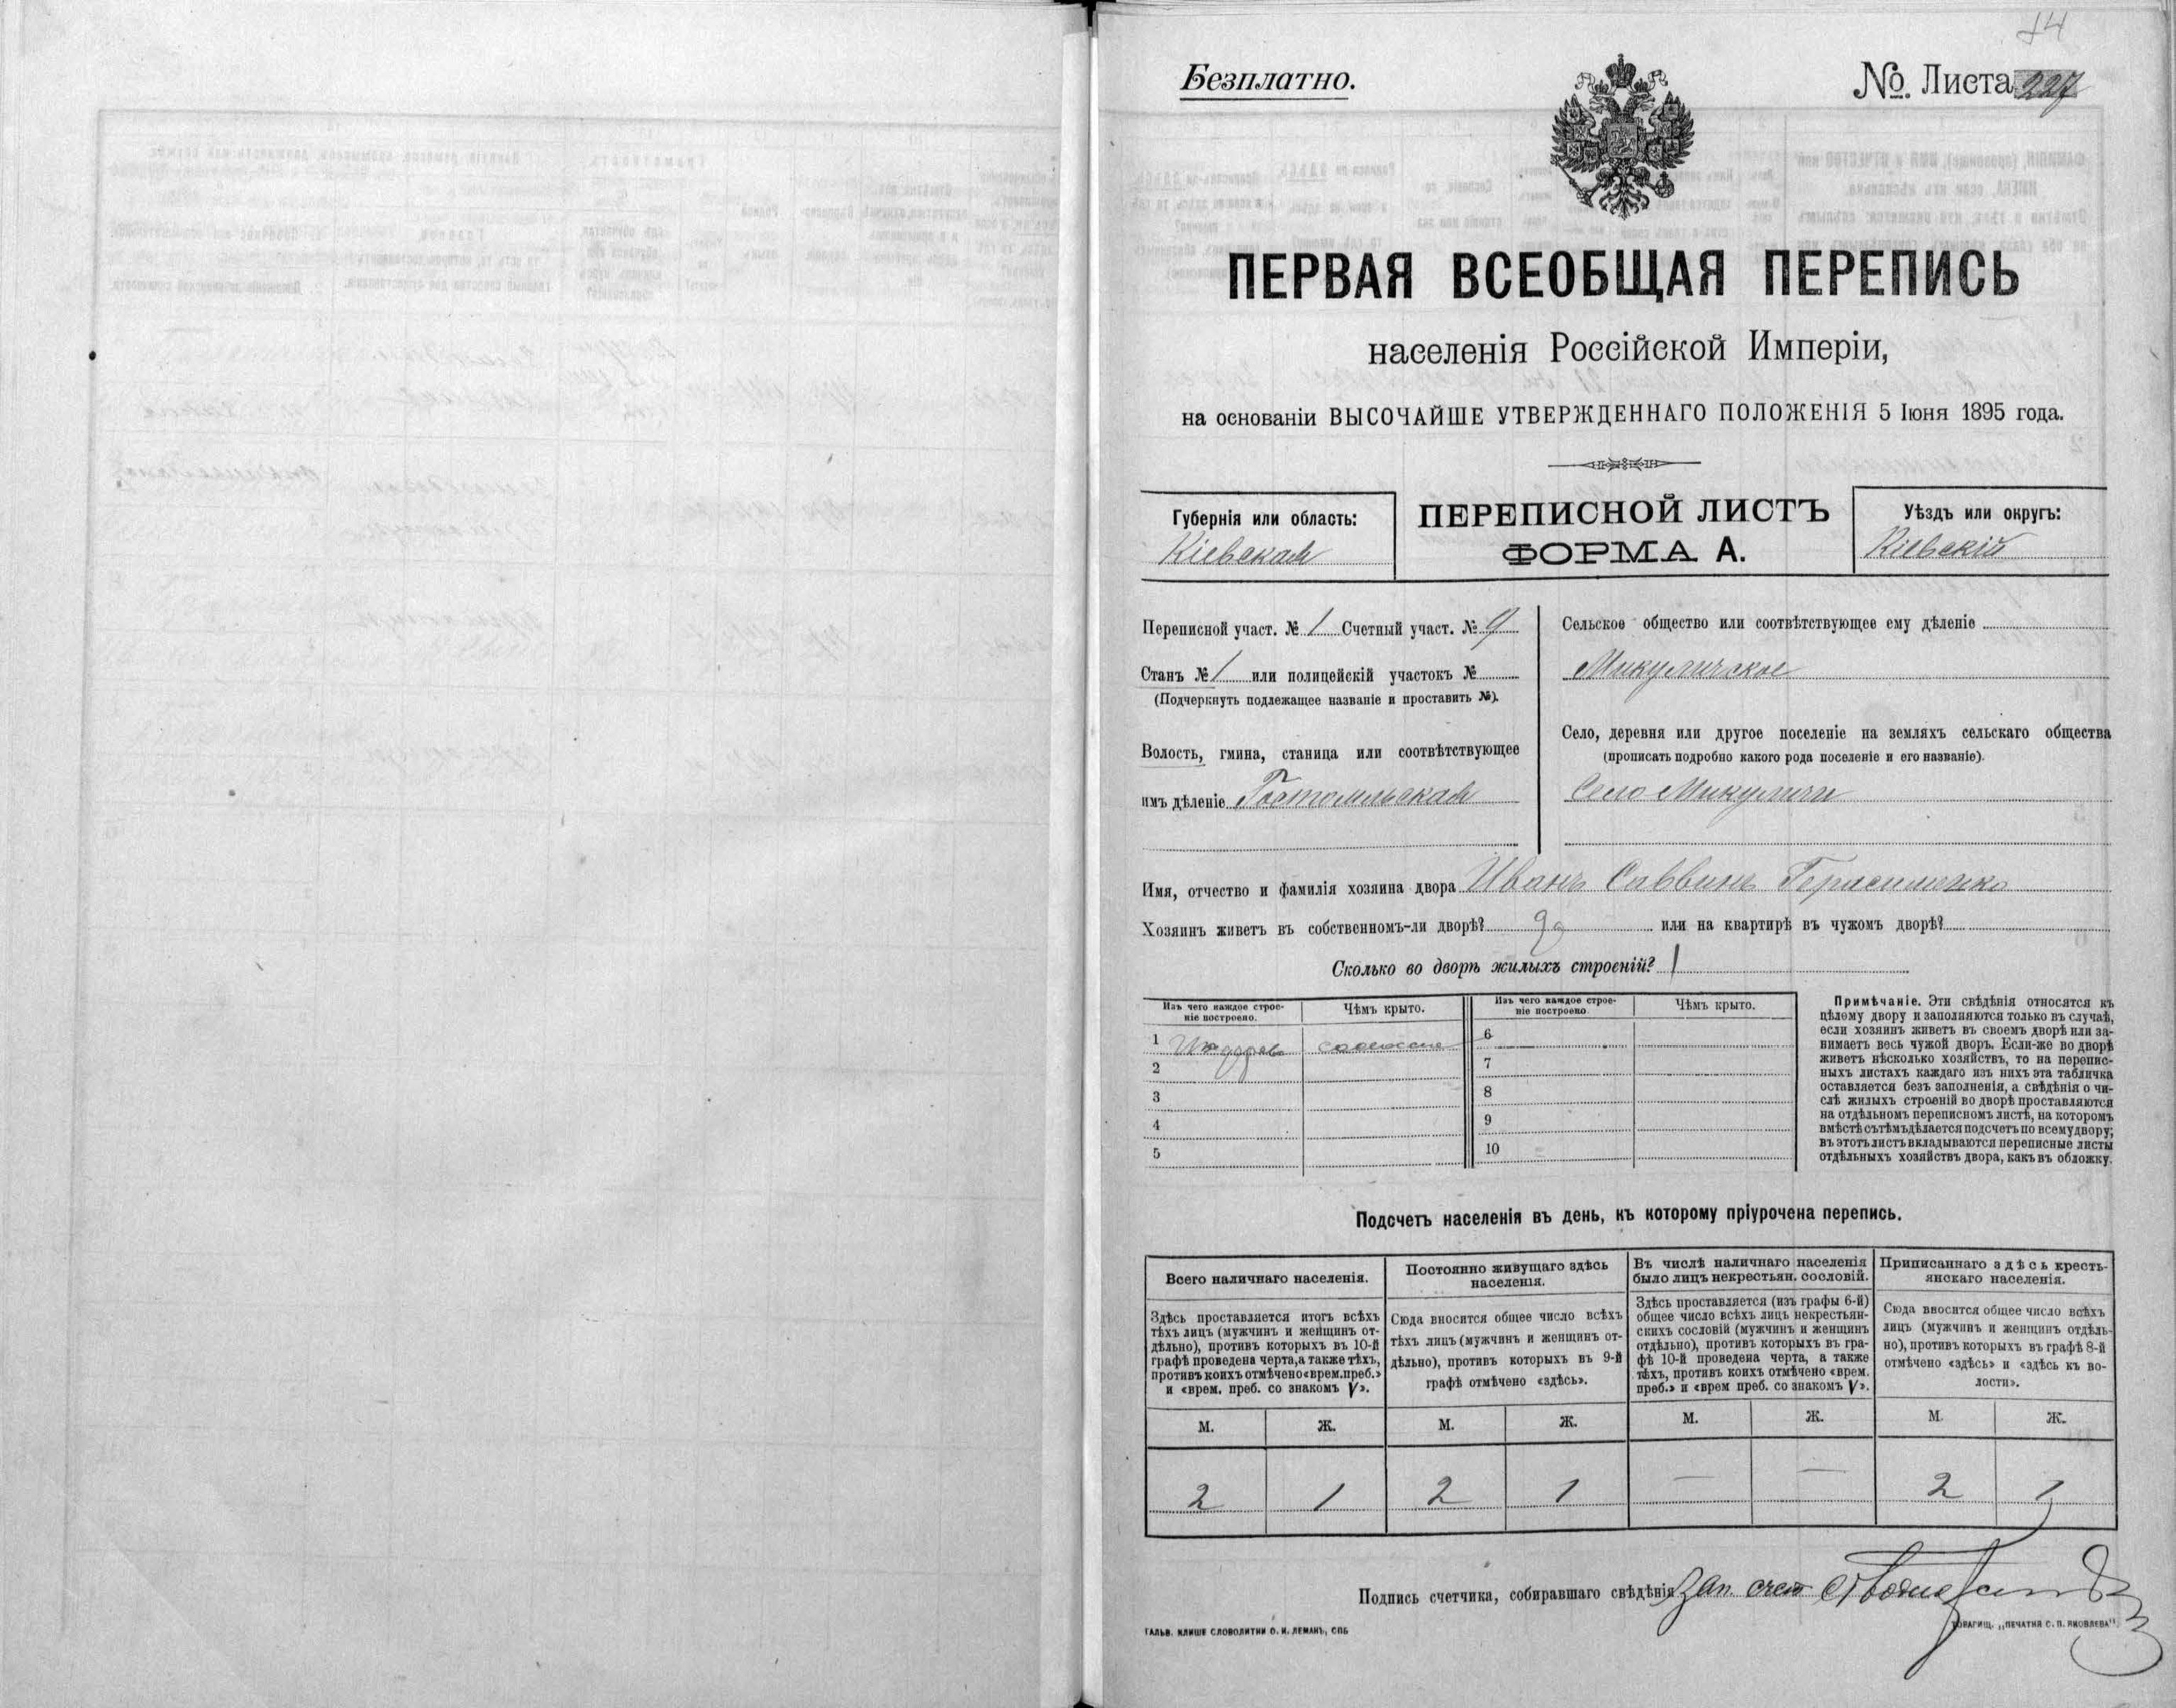 14
Безплатно.
№ Листа 227
ПЕРВАЯ ВСЕОБЩАЯ ПЕРЕПИСЬ
населенія Россійской Имперіи,
на основаніи ВЫСОЧАЙШЕ УТВЕРЖДЕННАГО ПОЛОЖЕНІЯ 5 Іюня 1895 года.
Губернія или область:
Кіевская
ПЕРЕПИСНОЙ ЛИСТЪ
ФОРМА А.
Уѣздъ или округъ:
Кіевскій
Переписной участ. № 1 Счетный участ. № 9
Станъ № 1 или полицейскій участокъ №
(Подчеркнуть подлежащее названіе и проставить №).
Волость, гмина, станица или соотвѣтствующее
имъ дѣленіе Гостомльская
Сельское общество или соотвѣтствующее ему дѣленіе
Микуличское
Село, деревня или другое поселеніе на земляхъ сельскаго общества
(прописать подробно какого рода поселеніе и его названіе).
Село Микуличи
Имя, отчество и фамилія хозяина двора Иванъ Саввинъ Герасименко
Хозяинъ живетъ въ собственномъ-ли дворѣ? да или на квартирѣ въ чужомъ дворѣ?
Сколько во дворѣ жилыхъ строеній? 1
Изъ чего каждое строе-
ніе построено.
Чѣмъ крыто.
Изъ чего каждое строе-
ніе построено
Чѣмъ крыто.
1 Изъ дерева соломою 6
2 7
3 8
4 9
5 10
Примѣчаніе. Эти свѣдѣнія относятся къ
цѣлому двору и заполняются только въ случаѣ,
если хозяинъ живетъ въ своемъ дворѣ или за-
нимаетъ весь чужой дворъ. Если-же во дворѣ
живетъ нѣсколько хозяйствъ, то на перепис-
ныхъ листахъ каждаго изъ нихъ эта табличка
оставляется безъ заполненія, а свѣдѣнія о чи-
слѣ жилыхъ строеній во дворѣ проставляются
на отдѣльномъ переписномъ листѣ, на которомъ
вмѣстѣ съ тѣмъ дѣлается подсчетъ по всему двору;
въ этотъ листъ вкладываются переписные листы
отдѣльныхъ хозяйствъ двора, какъ въ обложку.
Подсчетъ населенія въ день, къ которому пріурочена перепись.
Всего наличнаго населенія.
Здѣсь проставляется итогъ всѣхъ
тѣхъ лицъ (мужчинъ и женщинъ от-
дѣльно), противъ которыхъ въ 10-й
графѣ проведена черта, а также тѣхъ,
противъ коихъ отмѣчено «врем. преб.»
и «врем. преб. со знакомъ V».
Постоянно живущаго здѣсь
населенія.
Сюда вносится общее число всѣхъ
тѣхъ лицъ (мужчинъ и женщинъ от-
дѣльно), противъ которыхъ въ 9-й
графѣ отмѣчено «здѣсь».
Въ числѣ наличнаго населенія
было лицъ некрестьян. сословій.
Здѣсь проставляется (изъ графы 6-й)
общее число всѣхъ лицъ некрестьян-
скихъ сословій (мужчинъ и женщинъ
отдѣльно), противъ которыхъ въ гра-
фѣ 10-й проведена черта, а также
тѣхъ, противъ коихъ отмѣчено «врем.
преб.» и «врем преб. со знакомъ V».
Приписаннаго здѣсь кресть-
янскаго населенія.
Сюда вносится общее число всѣхъ
лицъ (мужчинъ и женщинъ отдѣль-
но), противъ которыхъ въ графѣ 8-й
отмѣчено «здѣсь» и «здѣсь къ во-
лости».
М. Ж. М. Ж. М. Ж. М. Ж.
2 1 2 1 — — 2 1
Подпись счетчика, собиравшаго свѣдѣнія Зап. счет
ГАЛЬВ. КЛИШЕ СЛОВОЛИТНИ О. И. ЛЕМАНЪ, СПБ
ТОВАРИЩ. „ПЕЧАТНЯ С. П. ЯКОВЛЕВА"